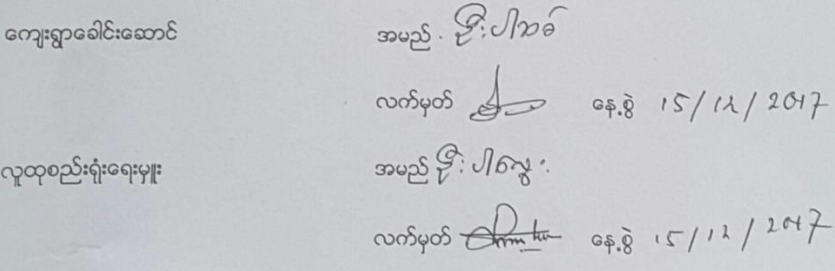 ကျေးရွာခေါင်းဆောင် အမည် . ဦးပါသစ်
လက်မှတ် နေ့စွဲ 15/12/2017
လူထုစည်းရုံးရေးမှူး အမည် ဦးပါလွေး
လက်မှတ် နေ့စွဲ 15/12/2017